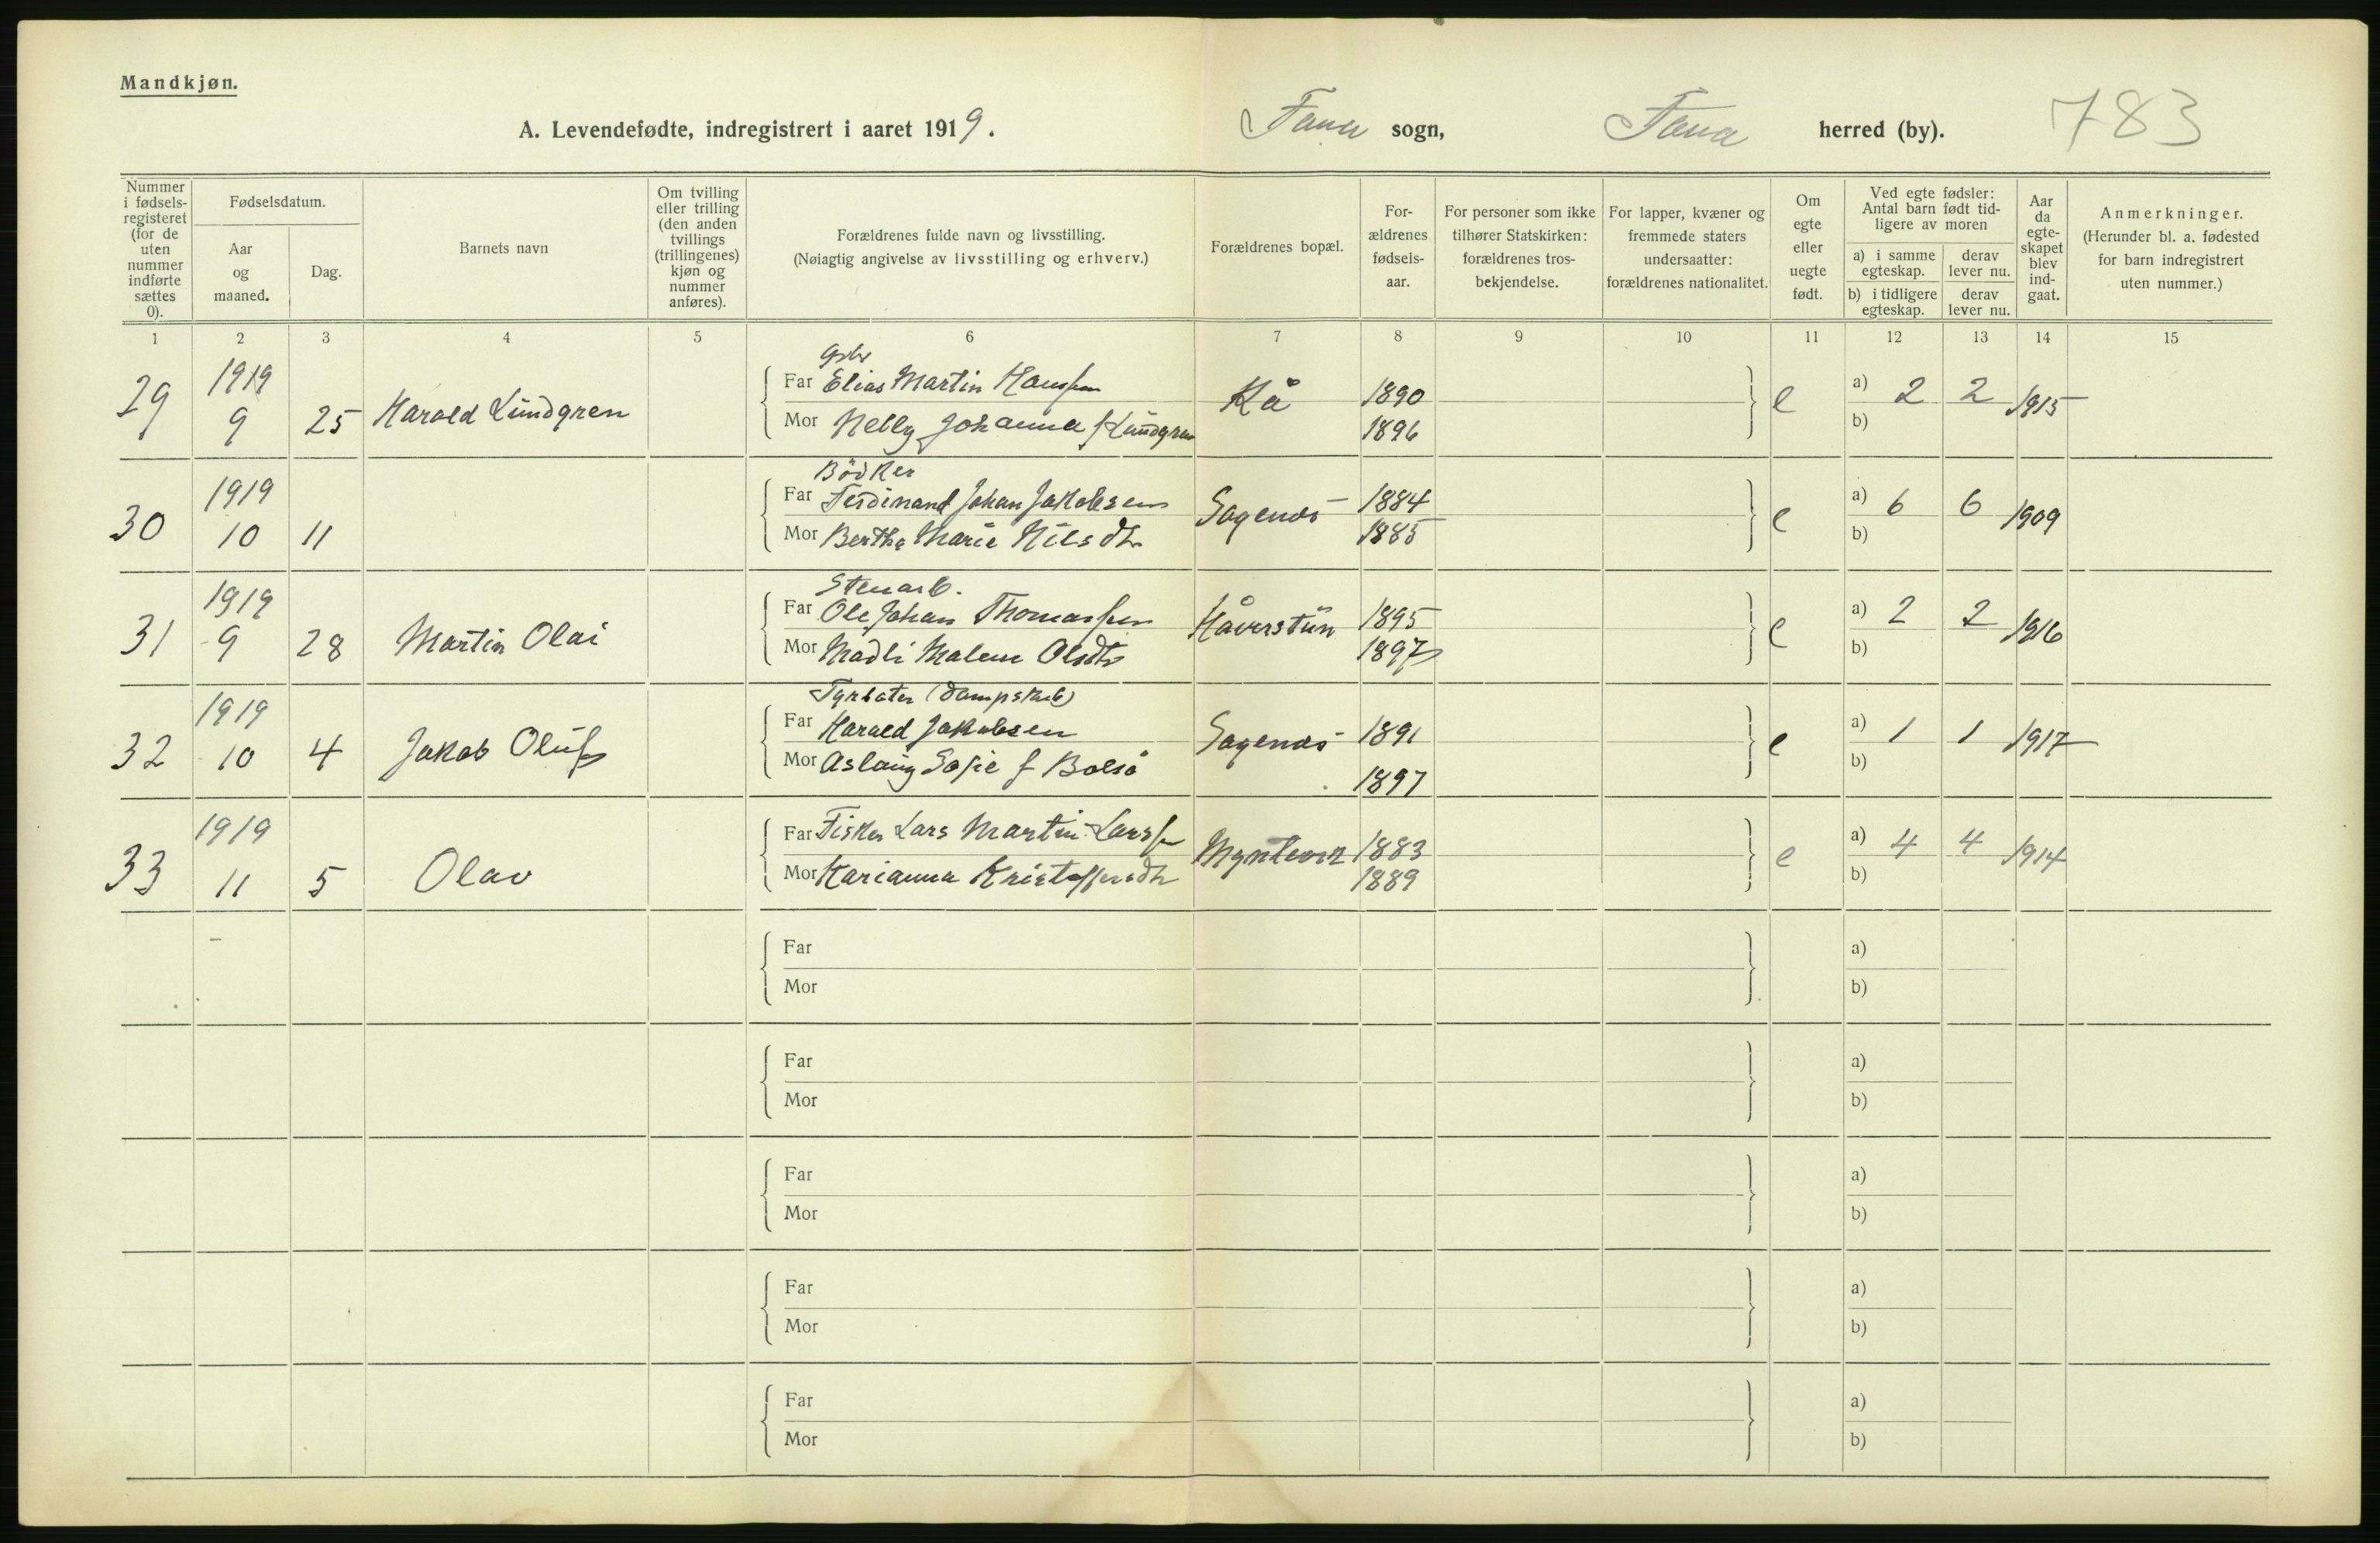 Mandkjøn.
A. Levendefødte, indregistrert i aaret 1919. Fana sogn, Fana herred (by). 783
Nummer i fødsels-registeret (for de uten nummer indførte sættes 0).
Fødselsdatum.
Aar og maaned.
Dag.
Barnets navn
Om tvilling eller trilling (den anden tvillings (trillingenes) kjøn og nummer anføres).
Forældrenes fulde navn og livsstilling.
(Nøiagtig angivelse av livsstilling og erhverv.)
Forældrenes bopæl.
For-ældrenes fødsels-aar.
For personer som ikke tilhører Statskirken: forældrenes tros-bekjendelse.
For lapper, kvæner og fremmede staters undersaatter: forældrenes nationalitet.
Om egte eller uegte født.
Ved egte fødsler: Antal barn født tid-ligere av moren
a) i samme egteskap.
derav lever nu.
b) i tidligere egteskap.
derav lever nu.
Aar da egte-skapet blev ind-gaat.
Anmerkninger.
(Herunder bl. a. fødested for barn indregistrert uten nummer.)
1 2 3 4 5 6 7 8 9 10 11 12 13 14 15
Gbr
29 1919 9 25 Harald Lundgren Far Elias Martin Hanssen Kå 1890 e a) 2 2 1915
Mor Nelly Johanna f Lundgren 1896 b)
Bödker
30 1919 10 11 Far Ferdinand Johan Jakobsen Sagenes 1884 e a) 6 6 1909
Mor Bertha Marie Nilsdtr 1885 b)
Stenarb.
31 1919 9 28 Martin Olai Far Ole Johan Thomassen 1895 e a) 2 2 1916
Mor Madli Malene Olsdtr 1897 b)
Fyrböter (Dampskib)
32 1919 10 4 Jakob Oluf Far Harald Jakobsen Sagenes 1891 e a) 1 1 1917
Mor Aslaug Sofie f 1897 b)
33 1919 11 5 Olav Far Fisker Lars Martin Larss 1883 e a) 4 4 1914
Mor Marianna Kristoffersdtr 1889 b)
Far a)
Mor b)
Far a)
Mor b)
Far a)
Mor b)
Far a)
Mor b)
Far a)
Mor b)